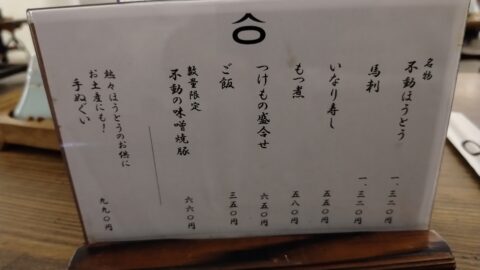 名物
不動ほうとう 一、三二〇円
馬刺 一、三二〇円
いなり寿し 五五〇円
もつ煮 五八〇円
つけもの盛合せ 六五〇円
ご飯 三五〇円
数量限定
不動の味噌焼豚 六六〇円
熱々ほうとうのお供に
お土産にも!
手ぬぐい 九九〇円